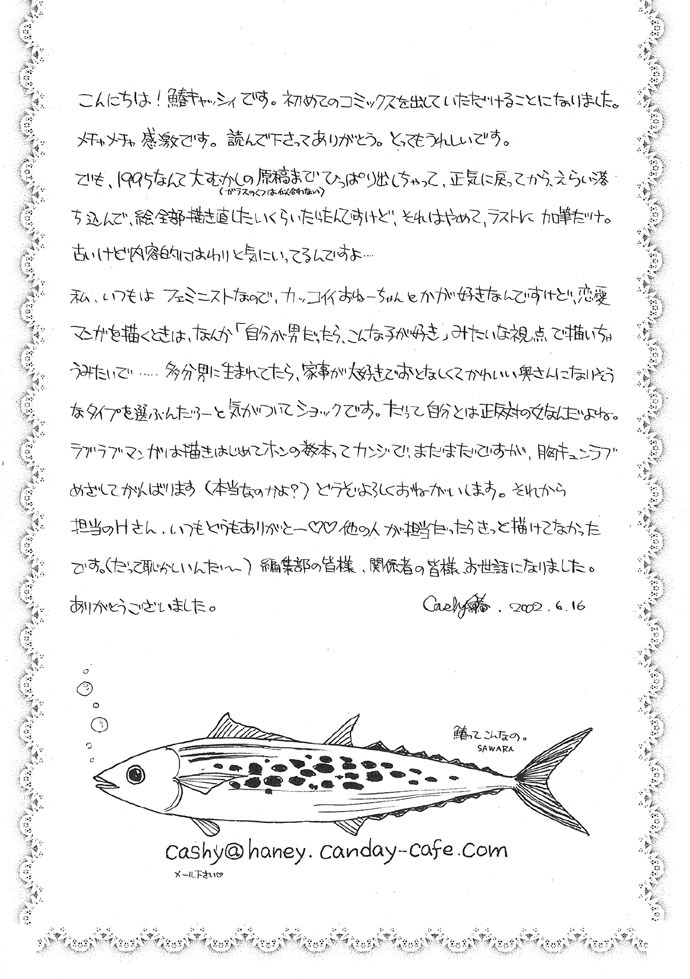 こんにちは！鰆キャッシィです。初めてのコミックスを出していただけることになりました。
メチャメチャ感激です。読んで下さってありがとう。とってもうれしいです。
でも、1995なんて大むかしの原稿までひっぱり出しちゃって、正気に戻ってから、えらい落
(ガラスのくつは似合わない)
ち込んで、絵全部描き直したいくらいだったんですけど、それはやめて、ラストに加筆だけ。
古いけど内容的にはわりと気にいってるんですよ…
私、いつもは フェミニストなので、カッコイイおねーちゃんとかが好きなんですけど、恋愛
マンガを描くときは、なんか「自分が男だったら、こんな子が好き」みたいな視点で描いちゃ
うみたいで…… 多分男に生まれてたら、家事が大好きでおとなしくてかわいい奥さんになりそう
なタイプを選ぶんだろーと気がついてショックです。だって自分とは正反対の女なんだよね。
ラブラブマンガは描きはじめてホンの数本ってカンジで、まだまだですが、胸キュンラブ
めざしてがんばります（本当なのかよ？）どうぞよろしくおねがいします。それから
担当のHさん、いつもどうもありがとー♡♡他の人が担当だったらきっと描けてなかった
です。(だって恥かしいんだい〜) 編集部の皆様、関係者の皆様、お世話になりました。
ありがとうございました。
Cashy鰆. 2002.6.16
鰆ってこんなの。
SAWARA
cashy@haney.canday-cafe.com
メール下さい♡